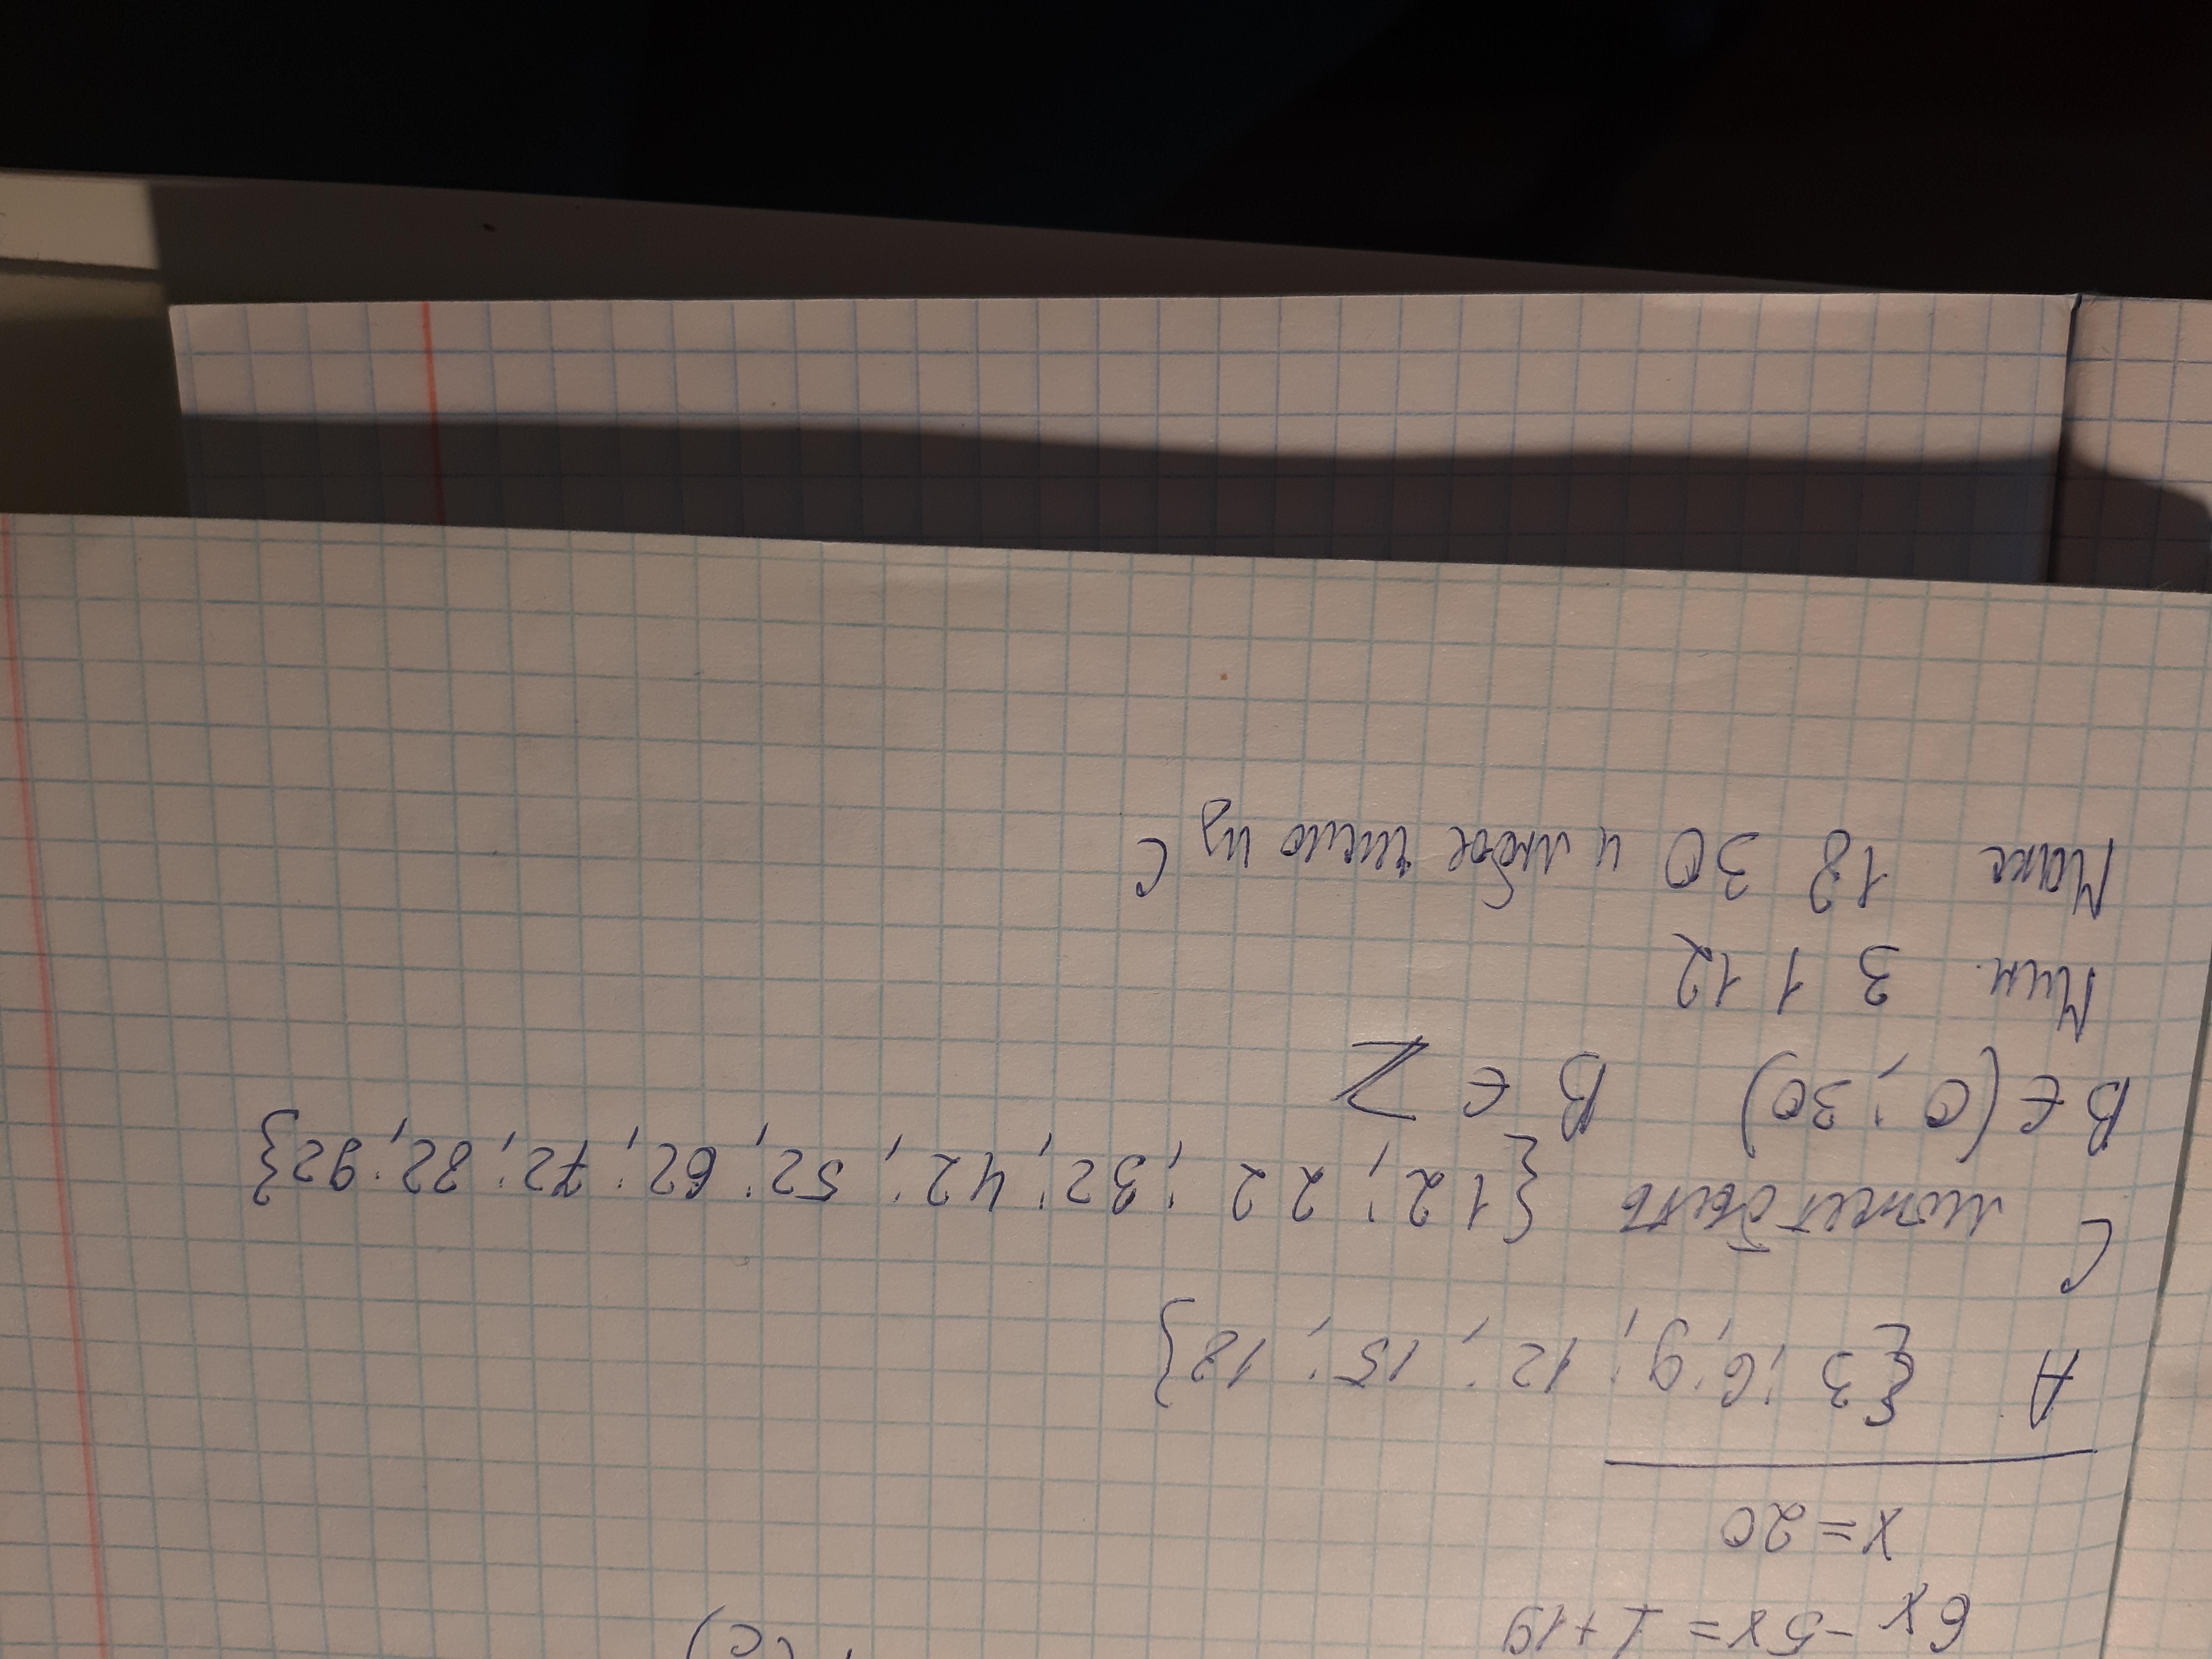 6x - 5x = 1 + 19
x = 20
A {3; 6; 9; 12; 15; 18}
C может быть {12; 22; 32; 42; 52; 62; 72; 82; 92}
B ∈ (0; 30) B ∈ Z
Мин. 3 1 12
Макс 18 30 и любое число из C